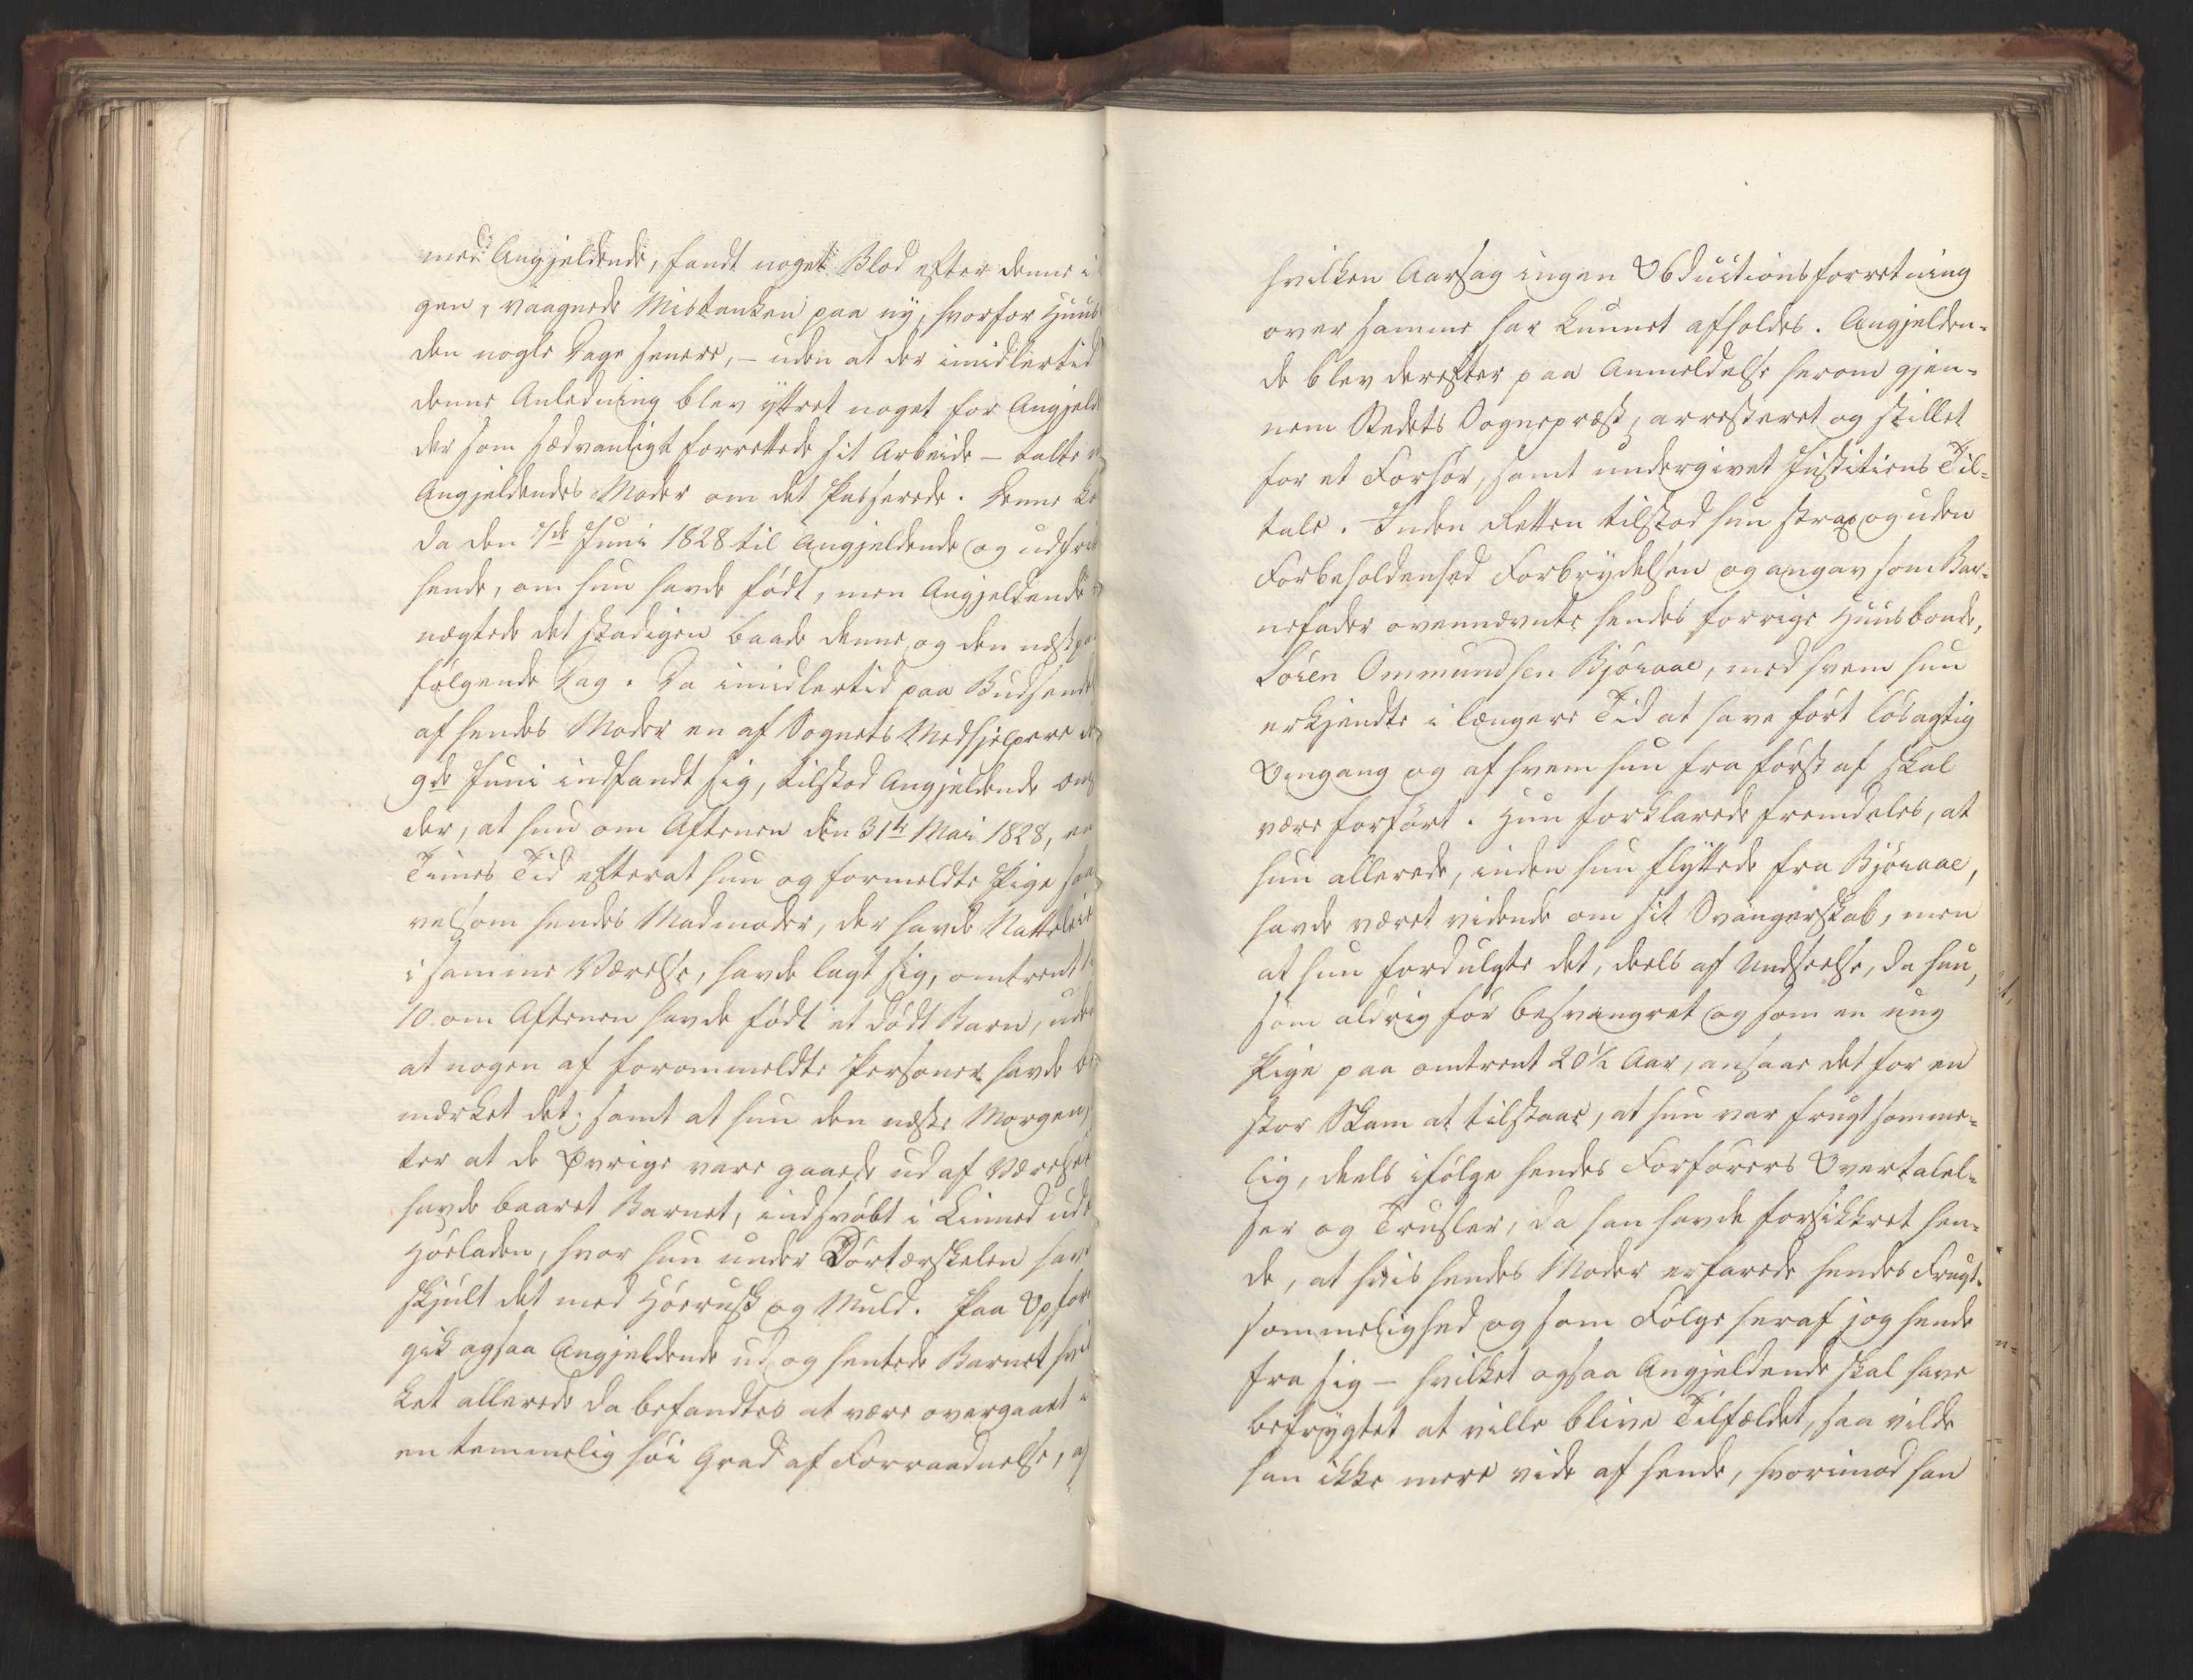 med Angjeldende, fandt noget Blod efter denne i
gen, vaagnede Mistanken paa ny, hvorfor Huus
den nogle Dage senere, – uden at der imidlertid
denne Anledning blev yttret noget for Angjeld
der som sædvanligt forrettede sit Arbeide – talte
Angjeldendes Moder om det Passerede. Denne
da den 7de Juni 1828 til Angjeldende og udfri
hende, om hun havde født, men Angjeldende
nægtede det stadigen baade denne og den næstpaa
følgende Dag. Da imidlertid paa Budsende
af hendes Moder en af Sognets Medhjelpere
9de Juni indfandt sig, tilstod Angjeldende
der, at hun om Aftenen den 31te Mai 1828, en
Times Tid efterat hun og formeldte Pige saa
velsom hendes Madmoder, der havde Natteleie
i samme Værelse, havde lagt sig, omtrent
10 om Aftenen havde født et dødt Barn, uden
at nogen af forommeldte Personer havde be
mærket det; samt at hun den næste Morgen,
ter at de Øvrige vare gaaede ud af Værelset
havde baaret Barnet, indsvøbt i Linned ud
Høeladen, hvor hun under Dørtærskelen hav
skjult det med Høerusk og Muld. Paa Opfor
gik ogsaa Angjeldende ud og hentede Barnet hvil
ket allerede da befandtes at være overgaaet
en temmelig høi Grad af Forraadnelse, af
hvilken Aarsag ingen Obductionsforretning
over samme har kunnet afholdes. Angjelden-
de blev derefter paa Anmeldelse herom gjen-
nem Stedets Sognepræst, arresteret og stillet
for et Forhør, samt undergivet Justitiens Til-
tale. Inden Retten tilstod hun strax og uden
Forbeholdenhed Forbrydelsen og angav som Bar-
nefader ovennævnte hendes forrige Huusbonde,
Sören Ommundsen Björaae, med hvem hun
erkjendte i længere Tid at have ført løsagtig
Omgang og af hvem hun fra først af skal
være forført. Hun forklarede fremdeles, at
hun allerede, inden hun flyttede fra Björaae,
havde været vidende om sit Svangerskab, men
at hun fordulgte det, deels af Undseelse, da hun,
som aldrig før besvangret og som en ung
Pige paa omtrent 20½ Aar, ansaae det for en
stor Skam at tilstaae, at hun var frugtsomme-
lig, deels ifølge hendes Forførers Overtalel-
ser og Trusler, da han havde forsikkret hen-
de, at hvis hendes Moder erfarede hendes Frugt-
sommelighed og som Følge heraf jog hende
fra sig – hvilket ogsaa Angjeldende skal have
befrygtet at ville blive Tilfældet, saa vilde
han ikke mere vide af hende, hvorimod han